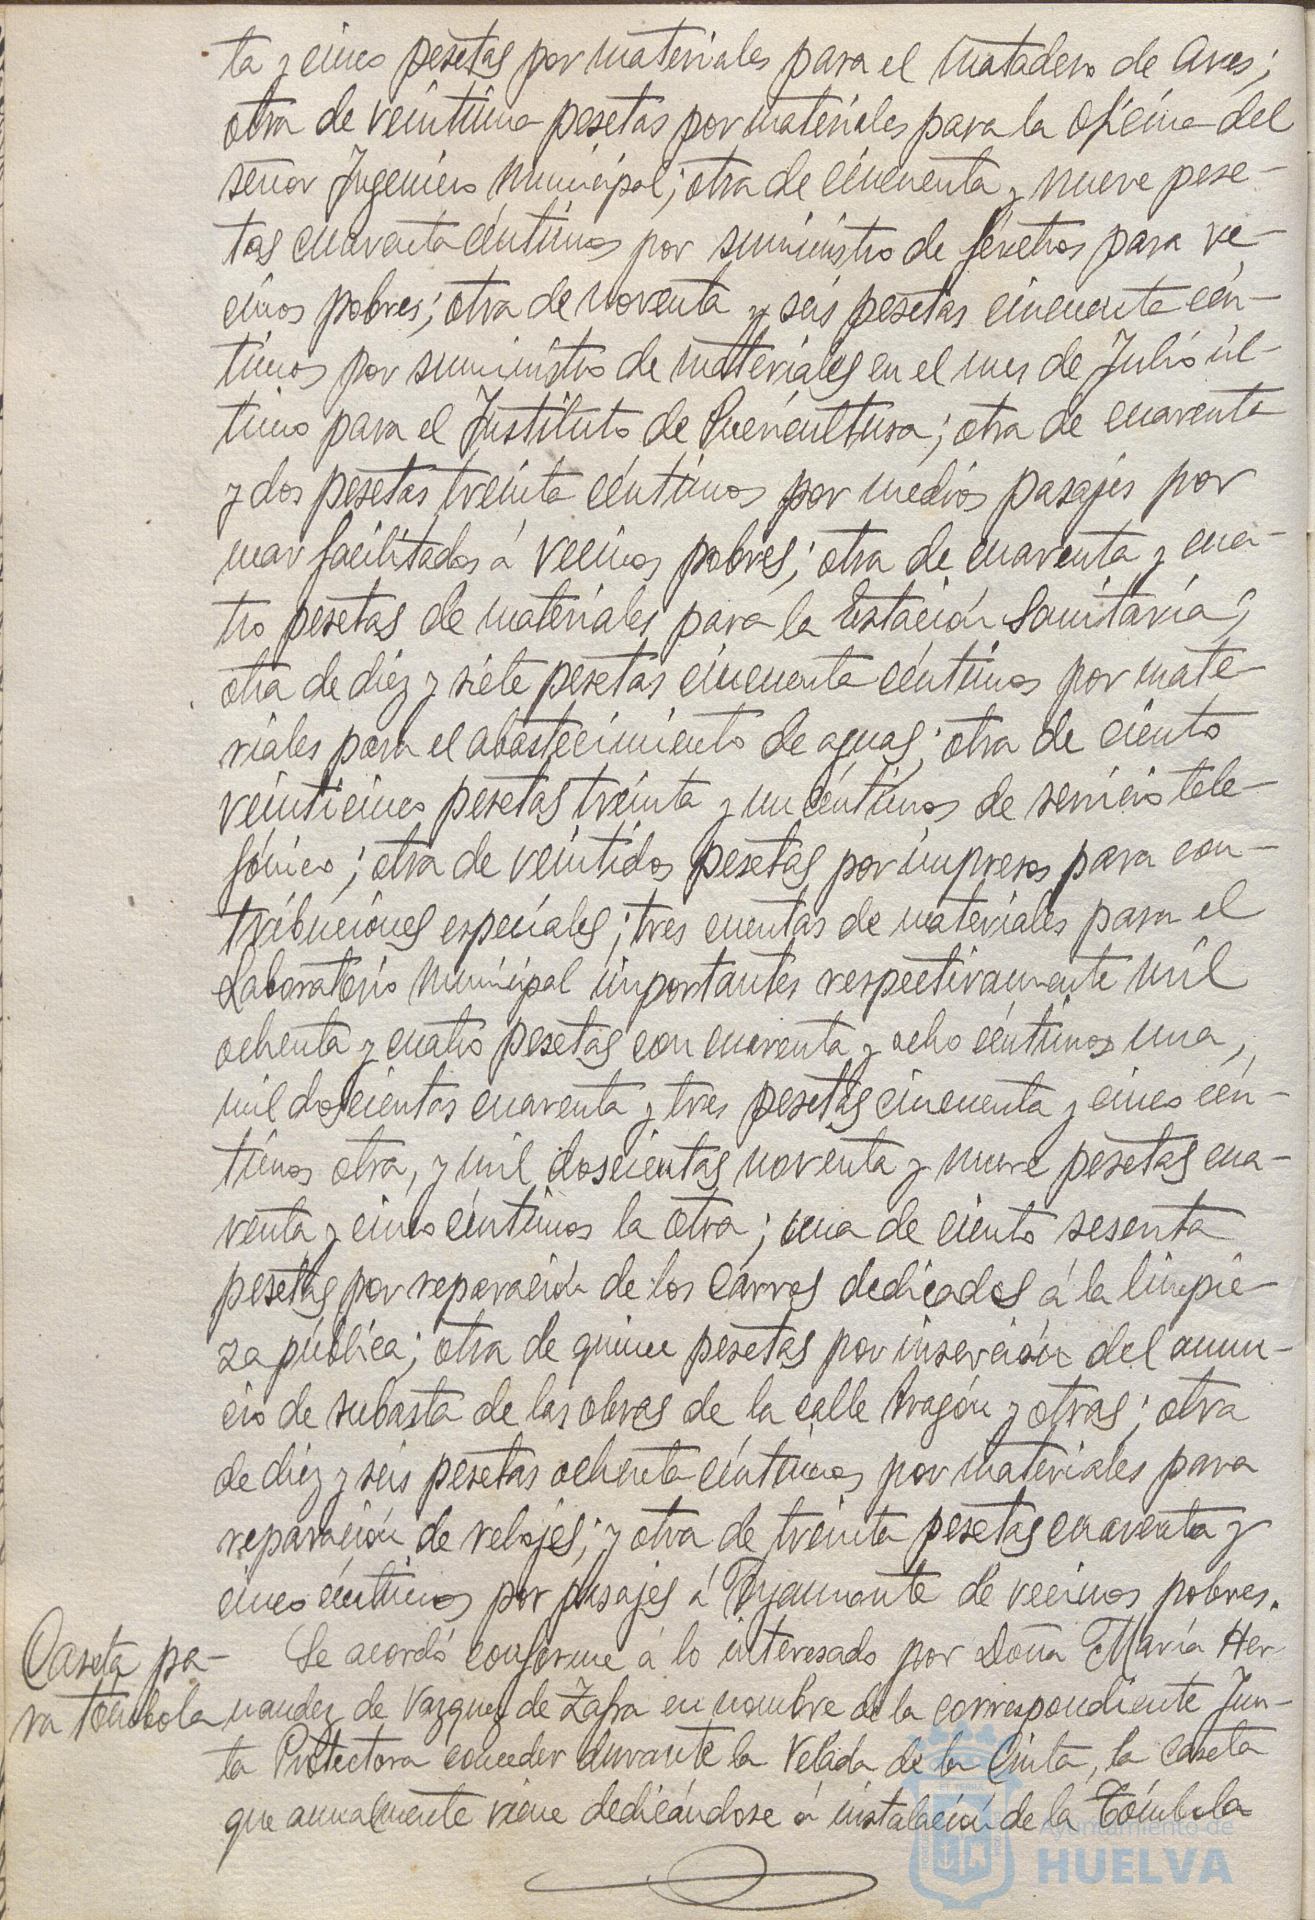 ta y cinco pesetas por materiales para el Matadero de Aves;
otra de veintiuna pesetas por materiales para la oficina del
señor Ingeniero Municipal; otra de cincuenta y nueve pese-
tas cuarenta céntimos por suministro de féretros para ve-
cinos pobres; otra de noventa y seis pesetas cincuenta cén-
timos por suministro de materiales en el mes de Julio úl-
timo para el Instituto de Puericultura; otra de cuarenta
y dos pesetas treinta céntimos por medios pasajes por
mar facilitados á vecinos pobres; otra de cuarenta y cua-
tro pesetas de materiales para la Estación Sanitaria;
otra de diez y siete pesetas cincuenta céntimos por mate-
riales para el abastecimiento de aguas; otra de ciento
veinticinco pesetas treinta y un céntimos de servicio tele-
fónico; otra de veintidos pesetas por impresos para con-
tribuciones especiales; tres cuentas de materiales para el
Laboratorio Municipal importantes respectivamente mil
ochenta y cuatro pesetas con cuarenta y ocho céntimos una,
mil doscientas cuarenta y tres pesetas cincuenta y cinco cén-
timos otra, y mil doscientas noventa y nueve pesetas cua-
renta y cinco céntimos la otra; una de ciento sesenta
pesetas por reparación de los carros dedicados á la limpie-
za pública; otra de quince pesetas por inserción del anun-
cio de subasta de las obras de la calle Aragón y otras; otra
de diez y seis pesetas ochenta céntimos por materiales para
reparación de relojes; y otra de treinta pesetas cuarenta y
cinco céntimos por pasajes á Ayamonte de vecinos pobres.
Caseta pa-
ra tómbola
Se acordó conforme á lo interesado por Doña María Her-
nandez de Vazquez de Zafra en nombre de la correspondiente Jun-
ta Protectora conceder durante la Velada de la Cinta, la caseta
que anualmente viene dedicándose á instalación de la Tómbola
Ayuntamiento de
HUELVA